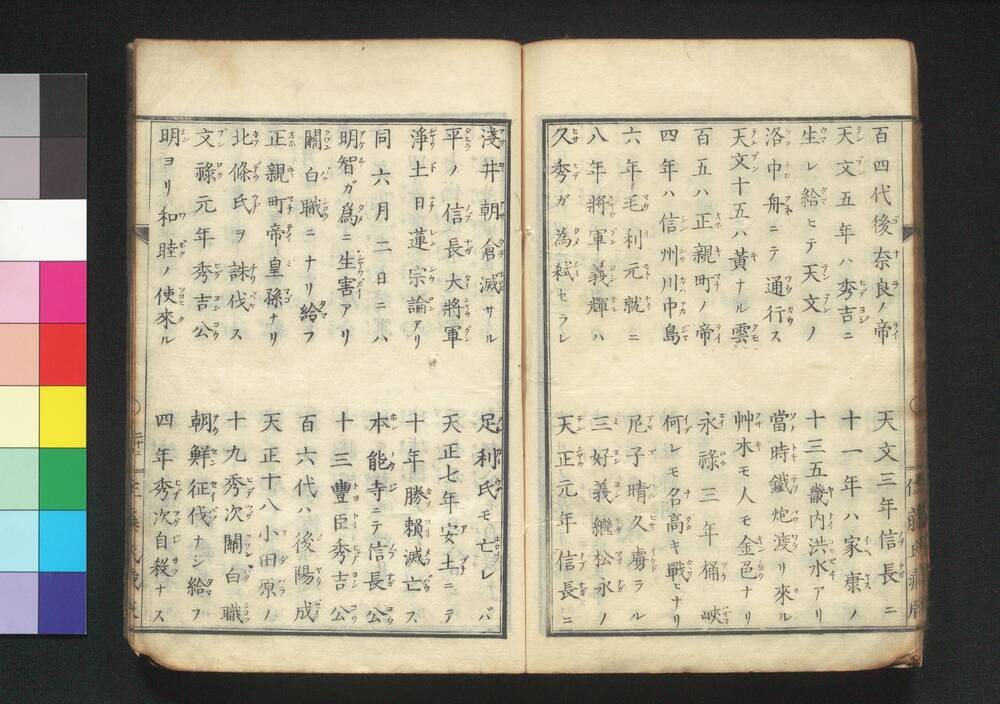 百四代後奈良ノ帝
天文三年信長ニ
天文五年ハ秀吉ニ
十一年ハ家康ノ
生レ給ヒテ天文ノ
十三五畿内洪水アリ
洛中舟ニテ通行ス
當時鐵炮渡リ來ル
天文十五ハ黃ナル雲
艸木モ人モ金色ナリ
百五ハ正親町ノ帝
永祿三年桶峽
四年ハ信州川中島
何レモ名高キ戰ヒナリ
六年毛利元就ニ
尼子晴久虜ラル
八年將軍義輝ハ
三好義繼松永ノ
久秀ガ為弑セラレ
天正元年信長ニ
淺井朝倉滅サル
足利氏モ亡レバ
平ノ信長大將軍
天正七年安土ニテ
淨土日蓮宗論アリ
十年勝賴滅亡ス
同六月二日ニハ
本能寺ニテ信長公
明智ガ為ニ生害アリ
十三豐臣秀吉公
關白職ニナリ給フ
百六代ハ後陽成
正親町帝皇孫ナリ
天正十八小田原ノ
北條氏ヲ誅伐ス
十九秀次關白職
文祿元年秀吉公
朝鮮征伐ナシ給フ
明ヨリ和睦ノ使來ル
四年秀次自殺ナス